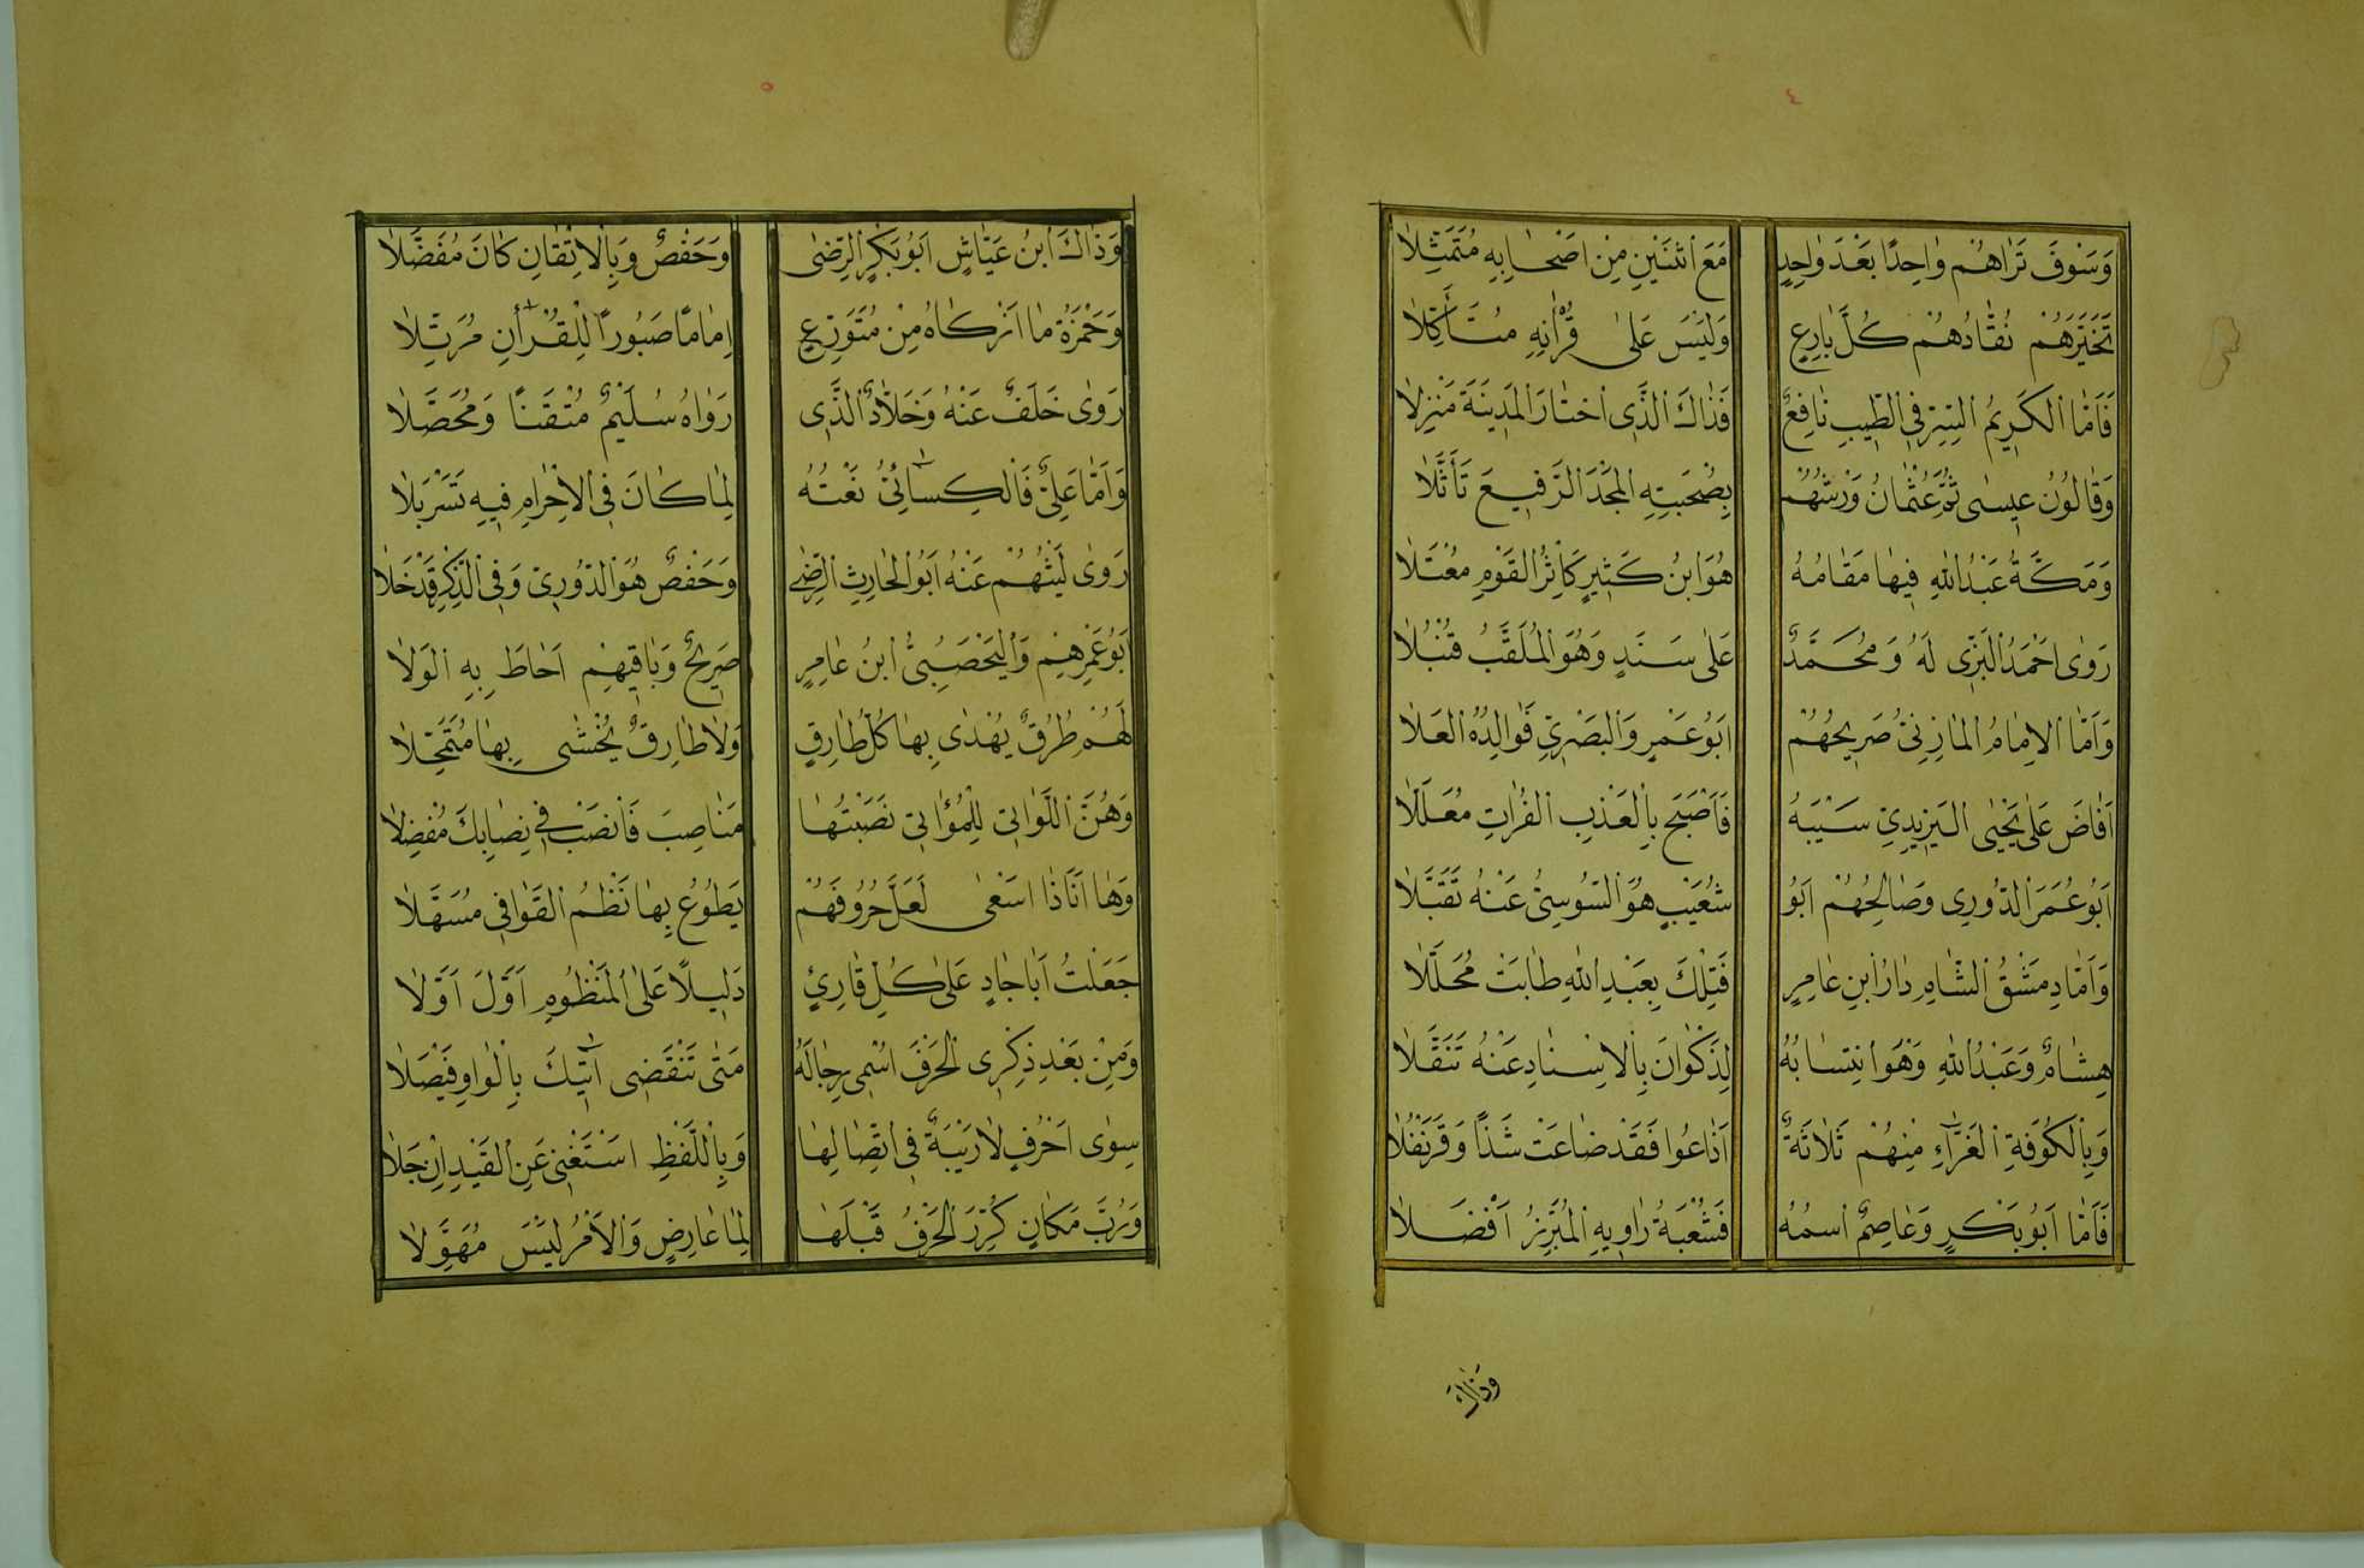 ٤
وَسَوْفَ تَرَاهُمْ وَاحِدًا بَعْدَ وَاحِدٍ مَعَ اثْنَيْنِ مِنْ اَصْحَابِهِ مُتَمَثِّلَا
تَخَيَّرَهُمْ نُقَّادُهُمْ كُلَّ بَارِعٍ وَلَيْسَ عَلَى قُرْاٰنِهِ مُتَأَكِّلَا
فَاَمَّا الْكَرِيمُ السِّرِّ فِي الطِّيبِ نَافِعٌ فَذَاكَ الَّذِى اخْتَارَ الْمَدِينَةَ مَنْزِلَا
وَقَالُونُ عِيسٰى ثُمَّ عُثْمَانُ وَرْشُهُمْ بِصُحْبَتِهِ الْمَجْدَ الرَّفِيعَ تَأَثَّلَا
وَمَكَّةُ عَبْدُ اللّٰهِ فِيهَا مَقَامُهُ هُوَ ابْنُ كَثِيرٍ كَاثِرُ الْقَوْمِ مُعْتَلَا
رَوٰى اَحْمَدُ الْبَزِّى لَهُ وَمُحَمَّدٌ عَلٰى سَنَدٍ وَهُوَ الْمُلَقَّبُ قُنْبُلَا
وَاَمَّا الْاِمَامُ الْمَازِنِىُّ صَرِيحُهُمْ اَبُو عَمْرٍ وَالْبَصْرِيِّ فَوَالِدُهُ الْعَلَا
اَفَاضَ عَلٰى يَحْيٰى الْيَزِيدِيِّ سَيْبَهُ فَاَصْبَحَ بِالْعَذْبِ الْفُرَاتِ مُعَلَّلَا
اَبُو عُمَرَ الدُّورِى وَصَالِحُهُمْ اَبُو شُعَيْبٍ هُوَ السُّوسِىُّ عَنْهُ تَقَبَّلَا
وَاَمَّا دِمَشْقُ الشَّامِ دَارُ ابْنِ عَامِرٍ فَتِلْكَ بِعَبْدِ اللّٰهِ طَابَتْ مُحَلَّلَا
هِشَامٌ وَعَبْدُ اللّٰهِ وَهْوَ انْتِسَابُهُ لِذَكْوَانَ بِالْاِسْنَادِ عَنْهُ تَنَقَّلَا
وَبِالْكُوفَةِ الْغَرَّاءِ مِنْهُمْ ثَلَاثَةٌ اَذَاعُوا فَقَدْ ضَاعَتْ شَذًا وَقَرَنْفُلَا
فَاَمَّا اَبُو بَكْرٍ وَعَاصِمٌ اسْمُهُ فَشُعْبَةُ رَاوِيهِ الْمُبَرِّزُ اَفْضَلَا
وَذَاكَ
٥
وَذَاكَ ابْنُ عَيَّاشٍ اَبُو بَكْرٍ الرِّضٰى وَحَفْصٌ وَبِالْاِتْقَانِ كَانَ مُفَضَّلَا
وَحَمْزَةُ مَا اَزْكَاهُ مِنْ مُتَوَرِّعٍ اِمَامًا صَبُورًا لِلْقُرْاٰنِ مُرَتِّلَا
رَوٰى خَلَفٌ عَنْهُ وَخَلَّادٌ الَّذِى رَوَاهُ سُلَيْمٌ مُتْقَنًا وَمُحَصَّلَا
وَاَمَّا عَلِىٌّ فَالْكِسَائِىُّ نَعْتُهُ لِمَا كَانَ فِى الْاِحْرَامِ فِيهِ تَسَرْبَلَا
رَوٰى لَيْثُهُمْ عَنْهُ اَبُو الْحَارِثِ الرِّضٰى وَحَفْصٌ هُوَ الدُّورِىّ وَفِى الذِّكْرِ قَدْ خَلَا
بُو عَمْرِهِمْ وَالْيَحْصَبِىُّ ابْنُ عَامِرٍ صَرِيحٌ وَبَاقِيهِمْ اَحَاطَ بِهِ الْوَلَا
لَهُمْ طُرُقٌ يُهْدٰى بِهَا كُلُّ طَارِقٍ وَلَا طَارِقٌ يُخْشٰى بِهَا مُتَمَحِّلَا
وَهُنَّ اللَّوَاتِى لِلْمُوَاتِى نَصَبْتُهَا مَنَاصِبَ فَانْصَبْ فِى نِصَابِكَ مُفْضِلَا
وَهَا اَنَا ذَا اَسْعٰى لَعَلَّ حُرُوفَهُمْ يَطُوعُ بِهَا نَظْمُ الْقَوَافِى مُسَهَّلَا
جَعَلْتُ اَبَا جَادٍ عَلٰى كُلِّ قَارِئٍ دَلِيلًا عَلَى الْمَنْظُومِ اَوَّلَ اَوَّلَا
وَمِنْ بَعْدِ ذِكْرِى الْحَرْفَ اُسْمِى رِجَالَهُ مَتٰى تَنْقَضِى اٰتِيكَ بِالْوَاوِ فَيْصَلَا
سِوٰى اَحْرُفٍ لَا رَيْبَةٌ فِى اتِّصَالِهَا وَبِاللَّفْظِ اَسْتَغْنِى عَنِ الْقَيْدِ اِنْ جَلَا
وَرُبَّ مَكَانٍ كُرِّرَ الْحَرْفُ قَبْلَهَا لِمَا عَارِضٍ وَالْاَمْرُ لَيْسَ مُهَوِّلَا